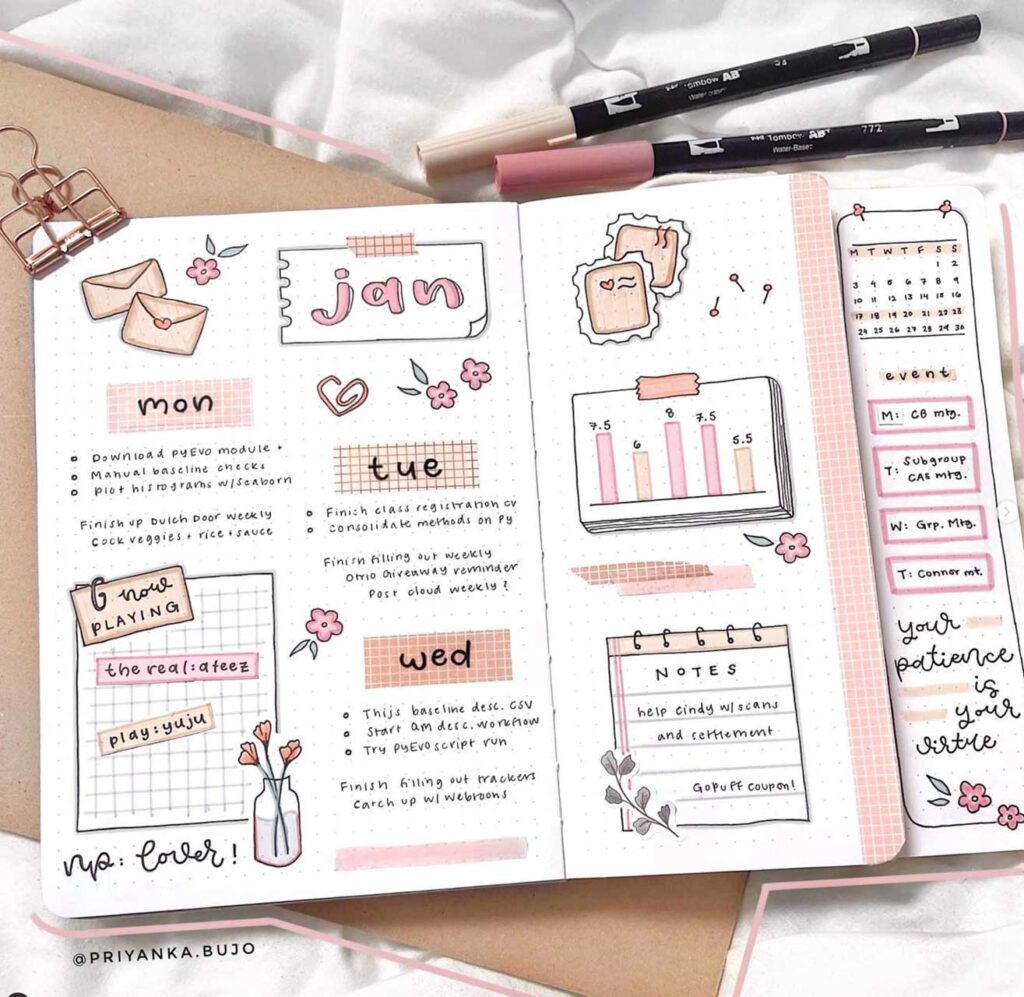 Tombow ABT
Water-Based
Tombow ABT 772
Water-Based
jan
mon
Download PyEVO module +
Manual baseline checks
Plot histograms w/seaborn
Finish up Dutch Door weekly
Cook veggies + rice + sauce
tue
Finish class registration CV
Consolidate methods on Py
Finish filling out weekly
Otrio Giveaway reminder
Post cloud weekly?
now
PLAYING
the real: ateez
play: yuju
np: lover!
wed
Thijs baseline desc. CSV
Start QM desc. workflow
Try PyEVO script run
Finish filling out trackers
Catch up w/ Webtoons
7.5
6
8
7.5
5.5
NOTES
help cindy w/ scans
and settlement
GoPuff coupon!
M T W T F S S
1 2
3 4 5 6 7 8 9
10 11 12 13 14 15 16
17 18 19 20 21 22 23
24 25 26 27 28 29 30
event
M: CB mtg.
T: Subgroup
CAE mtg.
W: Grp. Mtg.
T: Connor mt.
your
patience
is
your
virtue
@PRIYANKA.BUJO